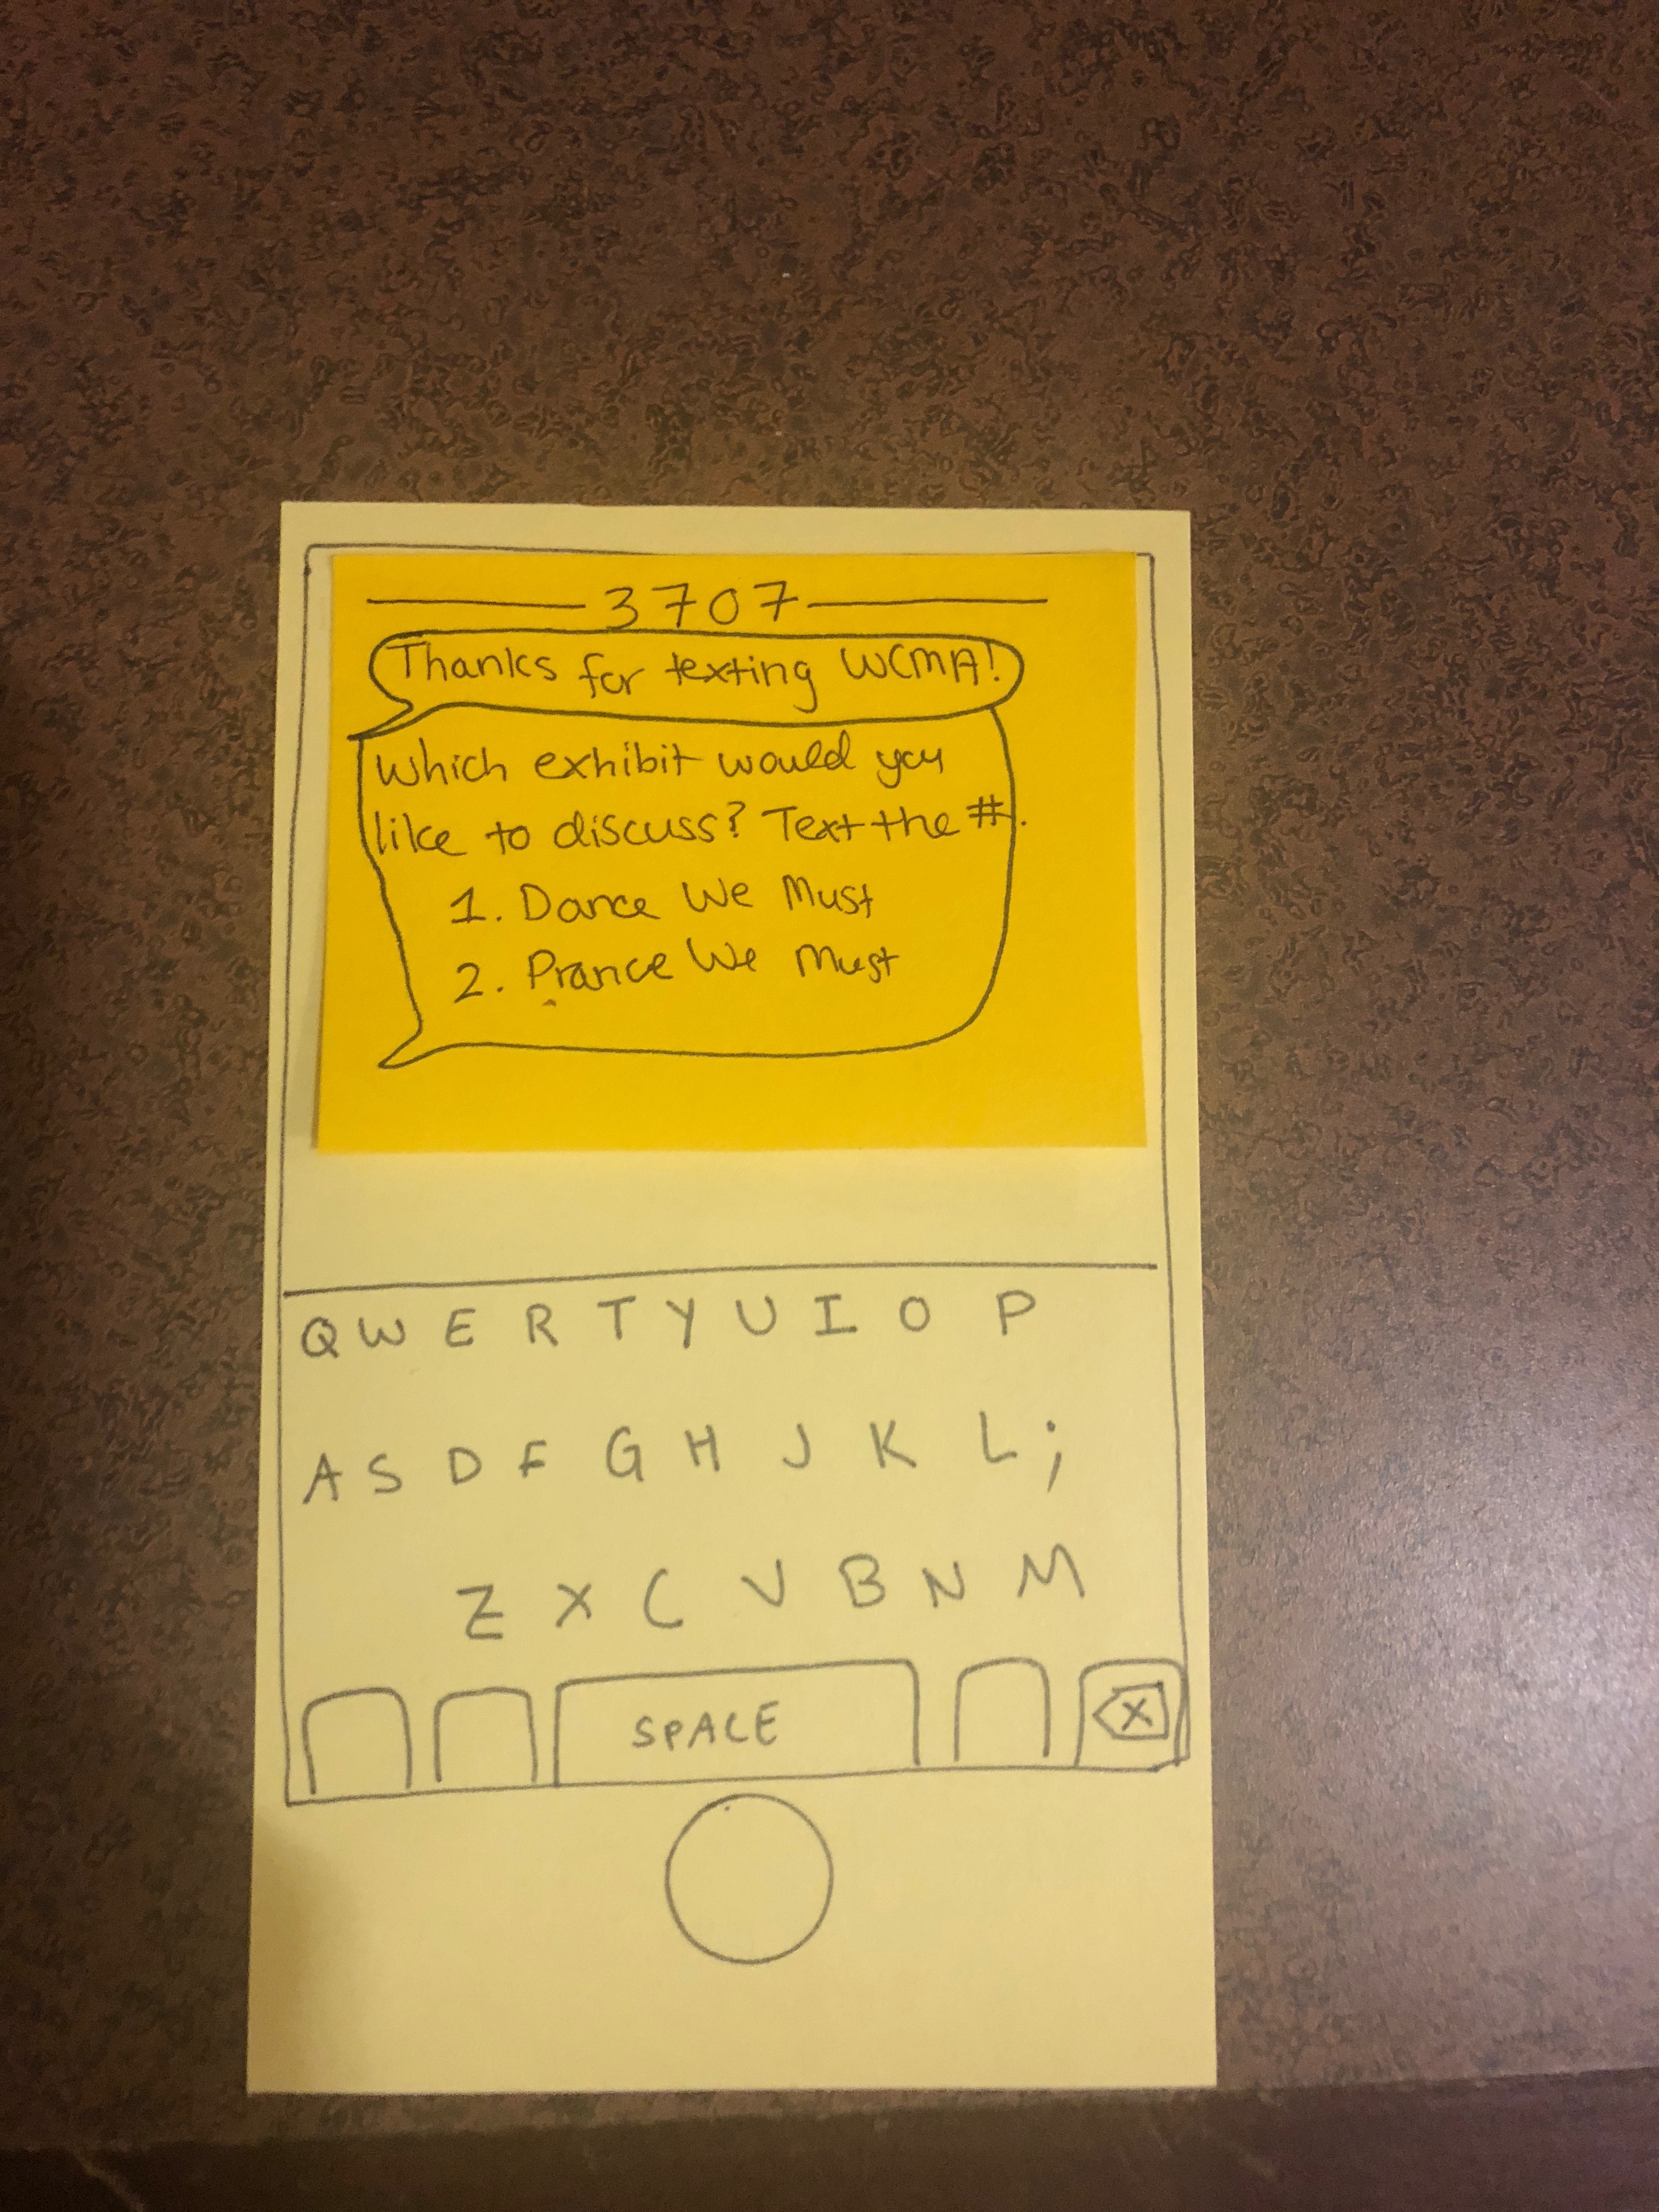 3707
Thanks for texting WCMA!
Which exhibit would you
like to discuss? Text the #.
1. Dance We Must
2. Prance We Must
Q W E R T Y U I O P
A S D F G H J K L ;
Z X C V B N M
SPACE X